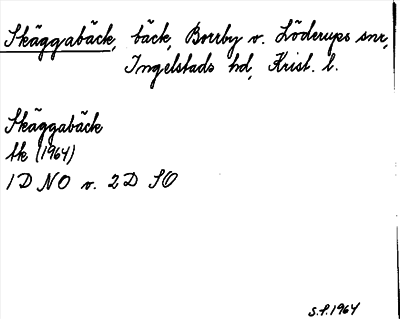 Skäggabäck, bäck, Borrby o. Löderups snr,
Ingelstads hd, Krist. l.
Skäggabäck
tk (1964)
1D NO o. 2D SO
S.F. 1964